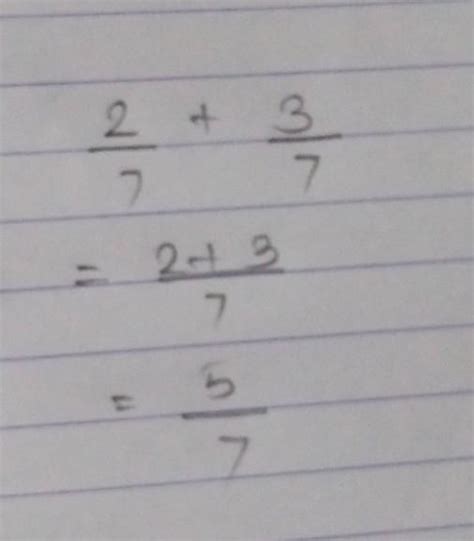 2/7 + 3/7
= 2+3/7
= 5/7